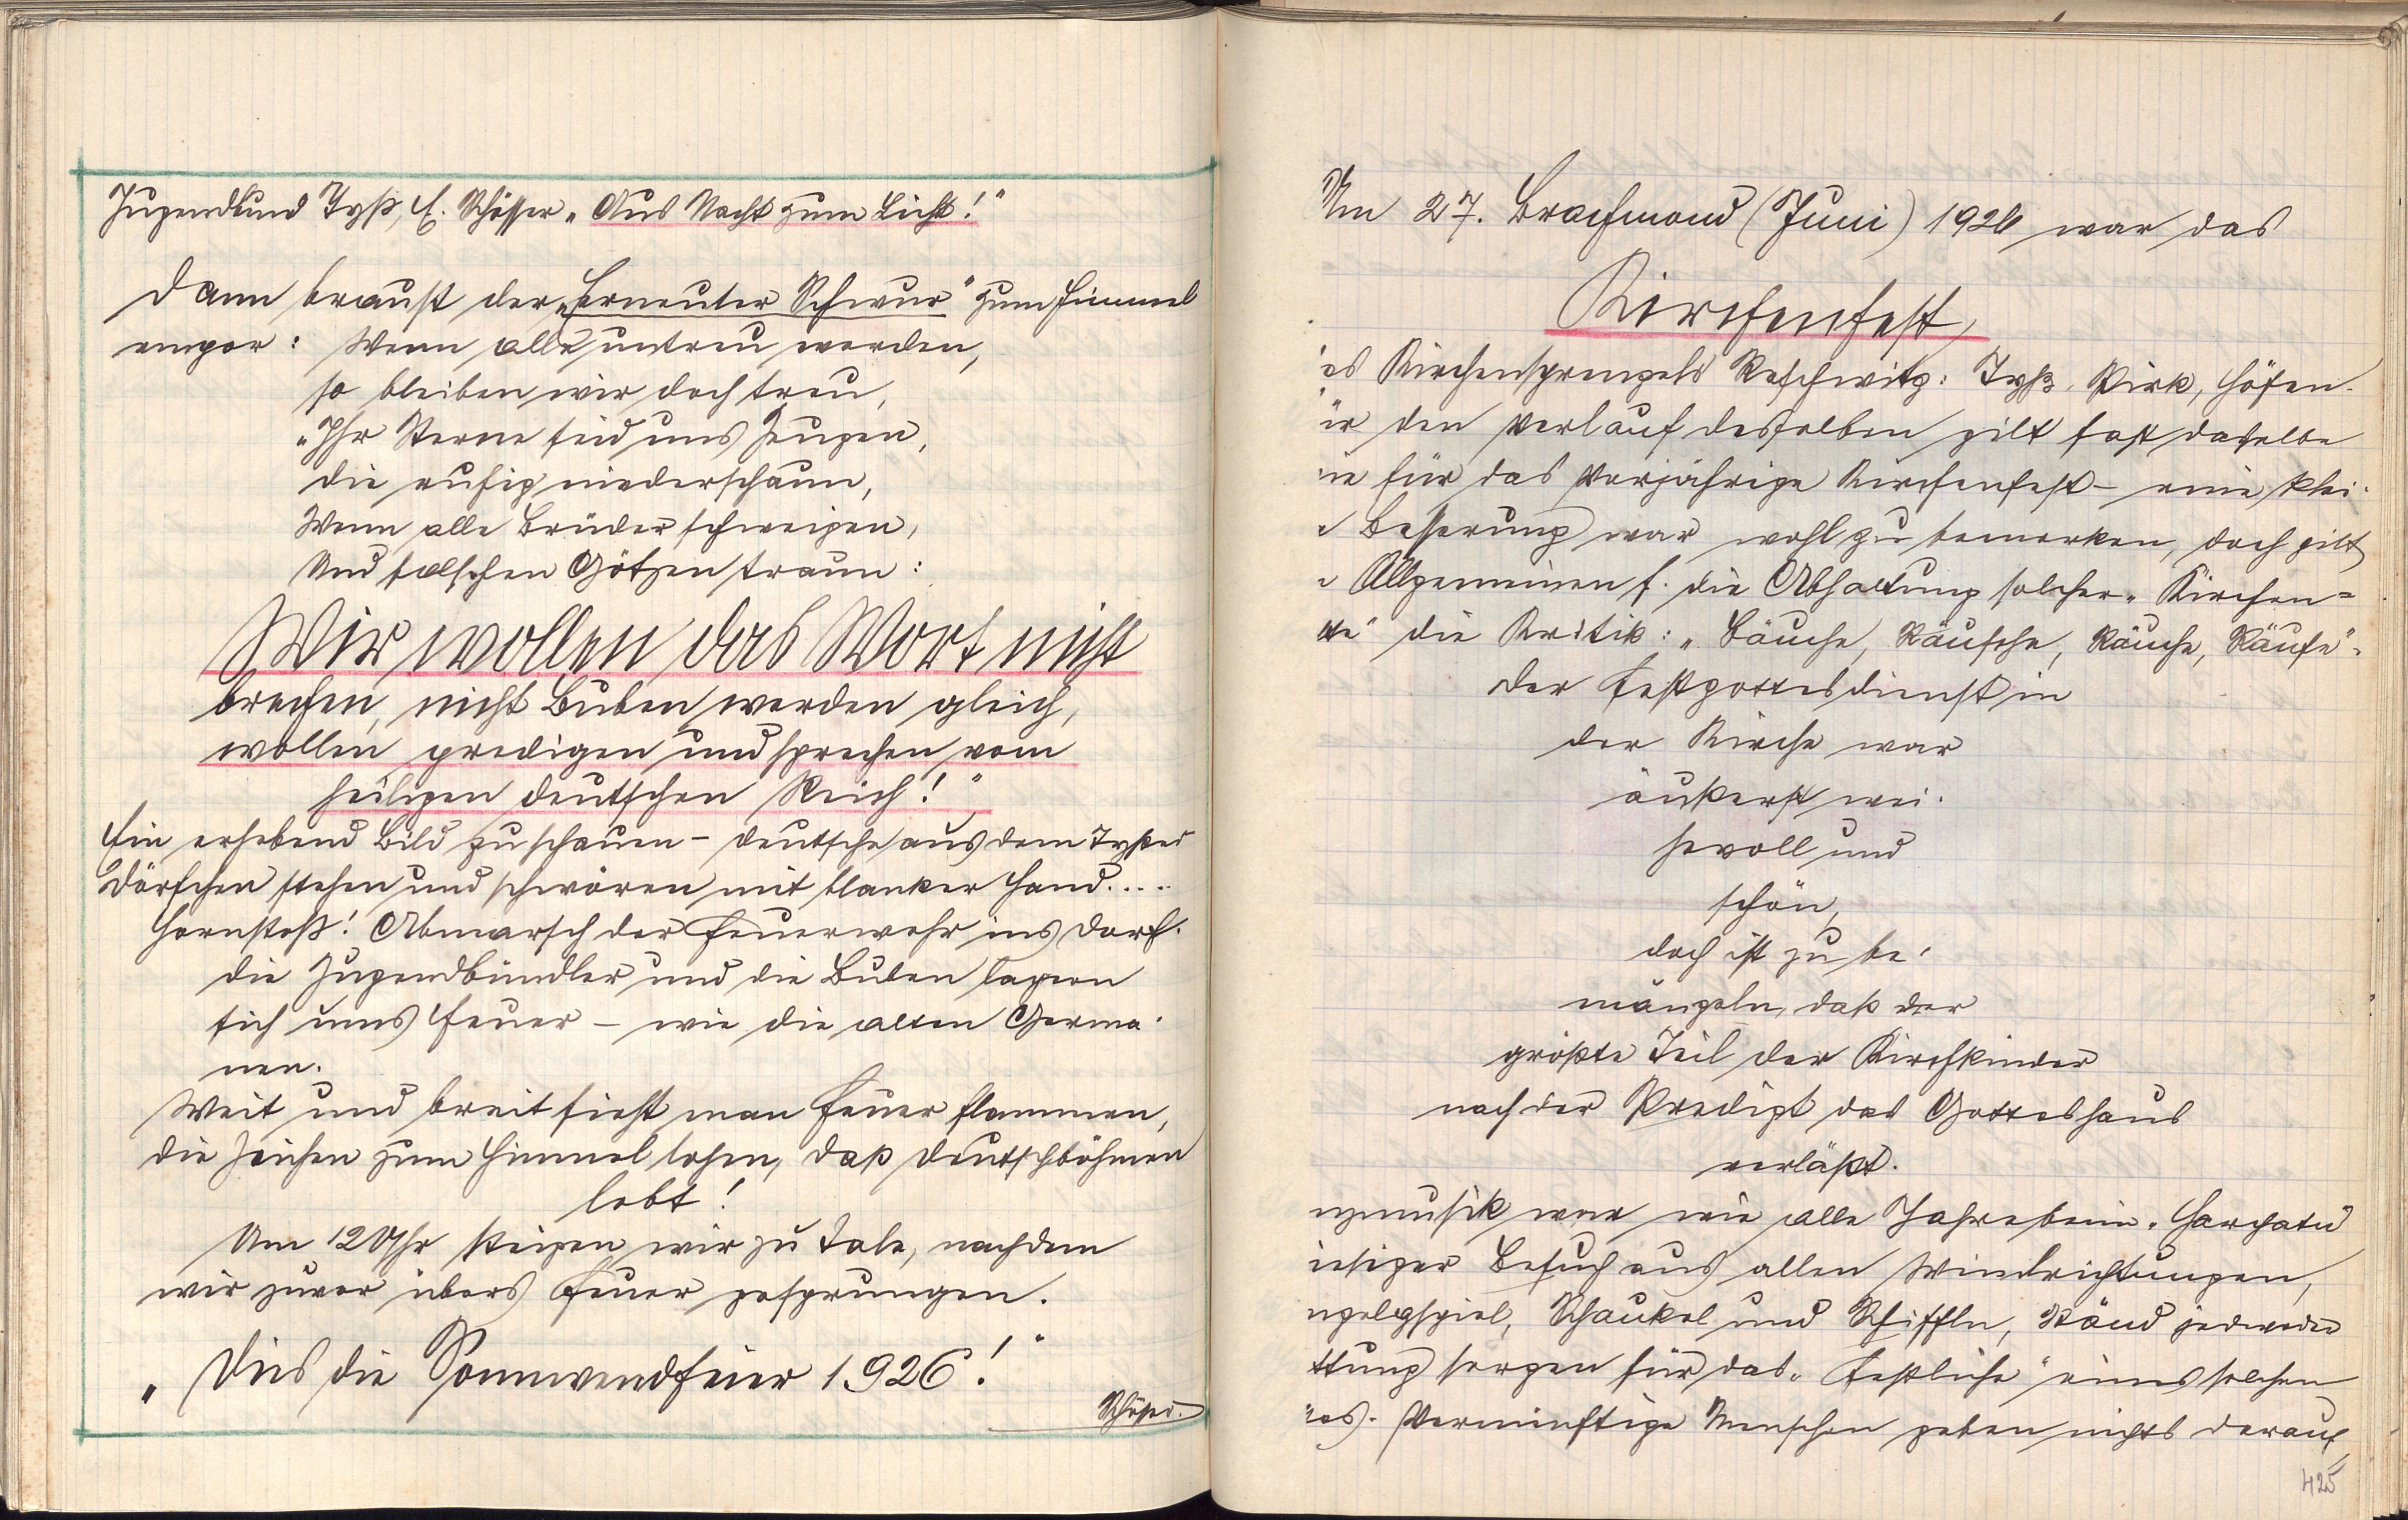 Jugendbund Tyß, E. Schösser „Aus Nacht zum Licht!"
Dann braust der „Erneuter Schwur" zum Himmel
empor: Wenn alle untreu werden,
so bleiben wir doch treu,
„Ihr Sterne seid uns Zeugen,
die ruhig niederschaun,
Wenn alle Brüder schweigen,
Und falschen Götzen traun:
Wir wollen das Wort nicht
brechen, nicht Buben werden gleich,
wollen predigen und sprechen vom
heiligen deutschen Reich!"
Ein erhebend Bild zu schauen – Deutsche aus dem Tyßer
Dörfchen stehen und schwören mit blanker Hand....
Hornstoß! Abmarsch der Feuerwehr ins Dorf.
Die Jugendbündler und die Buben lagern
sich ums Feuer – wie die alten Germa-
nen.
Weit und breit sieht man Feuer flammen,
die Zeichen zum Himmel lohen, daß Deutschböhmen
lebt!
Um 12 Uhr steigen wir zu Tale, nachdem
wir zuvor übers Feuer gesprungen.
„Dies die Sonnwendfeier 1926!"
Am 27. Brachmond (Juni) 1926 war das
Kirchenfest,
es Kirchensprengels Reschwitz: Tyß, Pirk, Höfen.
ür den Verlauf desselben gilt fast dasselbe
ie für das vorjährige Kirchenfest – eine klei-
e Besserung war wohl zu bemerken, doch gilt
Allgemeinen f. die Abhaltung solcher „Kirchen=
te" die Kritik: „Bäuche, Räusche, Räuche, Räufe".
Der Festgottesdienst in
der Kirche war
äußerst wei-
hevoll und
schön,
doch ist zu be-
mängeln, daß der
größte Teil der Kirchkinder
nach der Predigt das Gotteshaus
verläßt.
nzmusik war wie alle Jahre beim „
iesiger Besuch aus allen Windrichtungen,
ngelgspiel, Schaukel und Schiffln, Ständ jedweder
ttung sorgen für das „Festliche" eines solchen
es. Vernünftige Menschen geben nichts darauf,
425